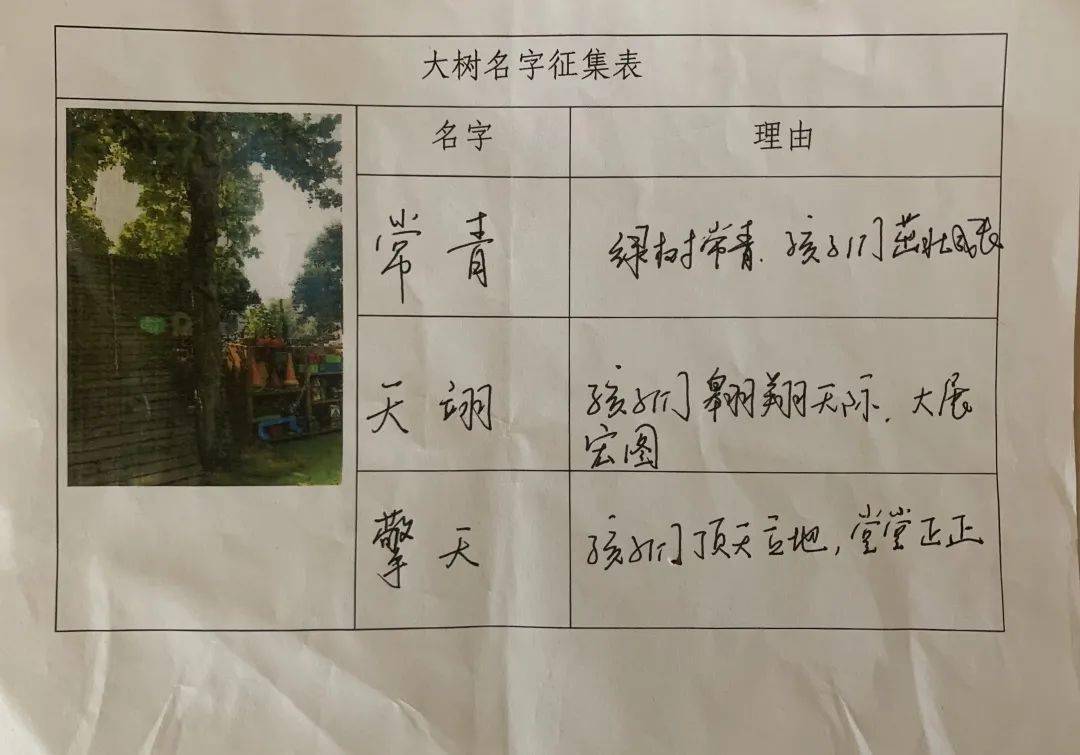 大树名字征集表
名字 理由
常青 绿树常青.孩子们茁壮成长
天翊 孩子们翱翔天际.大展
宏图
擎天 孩子们顶天立地,堂堂正正